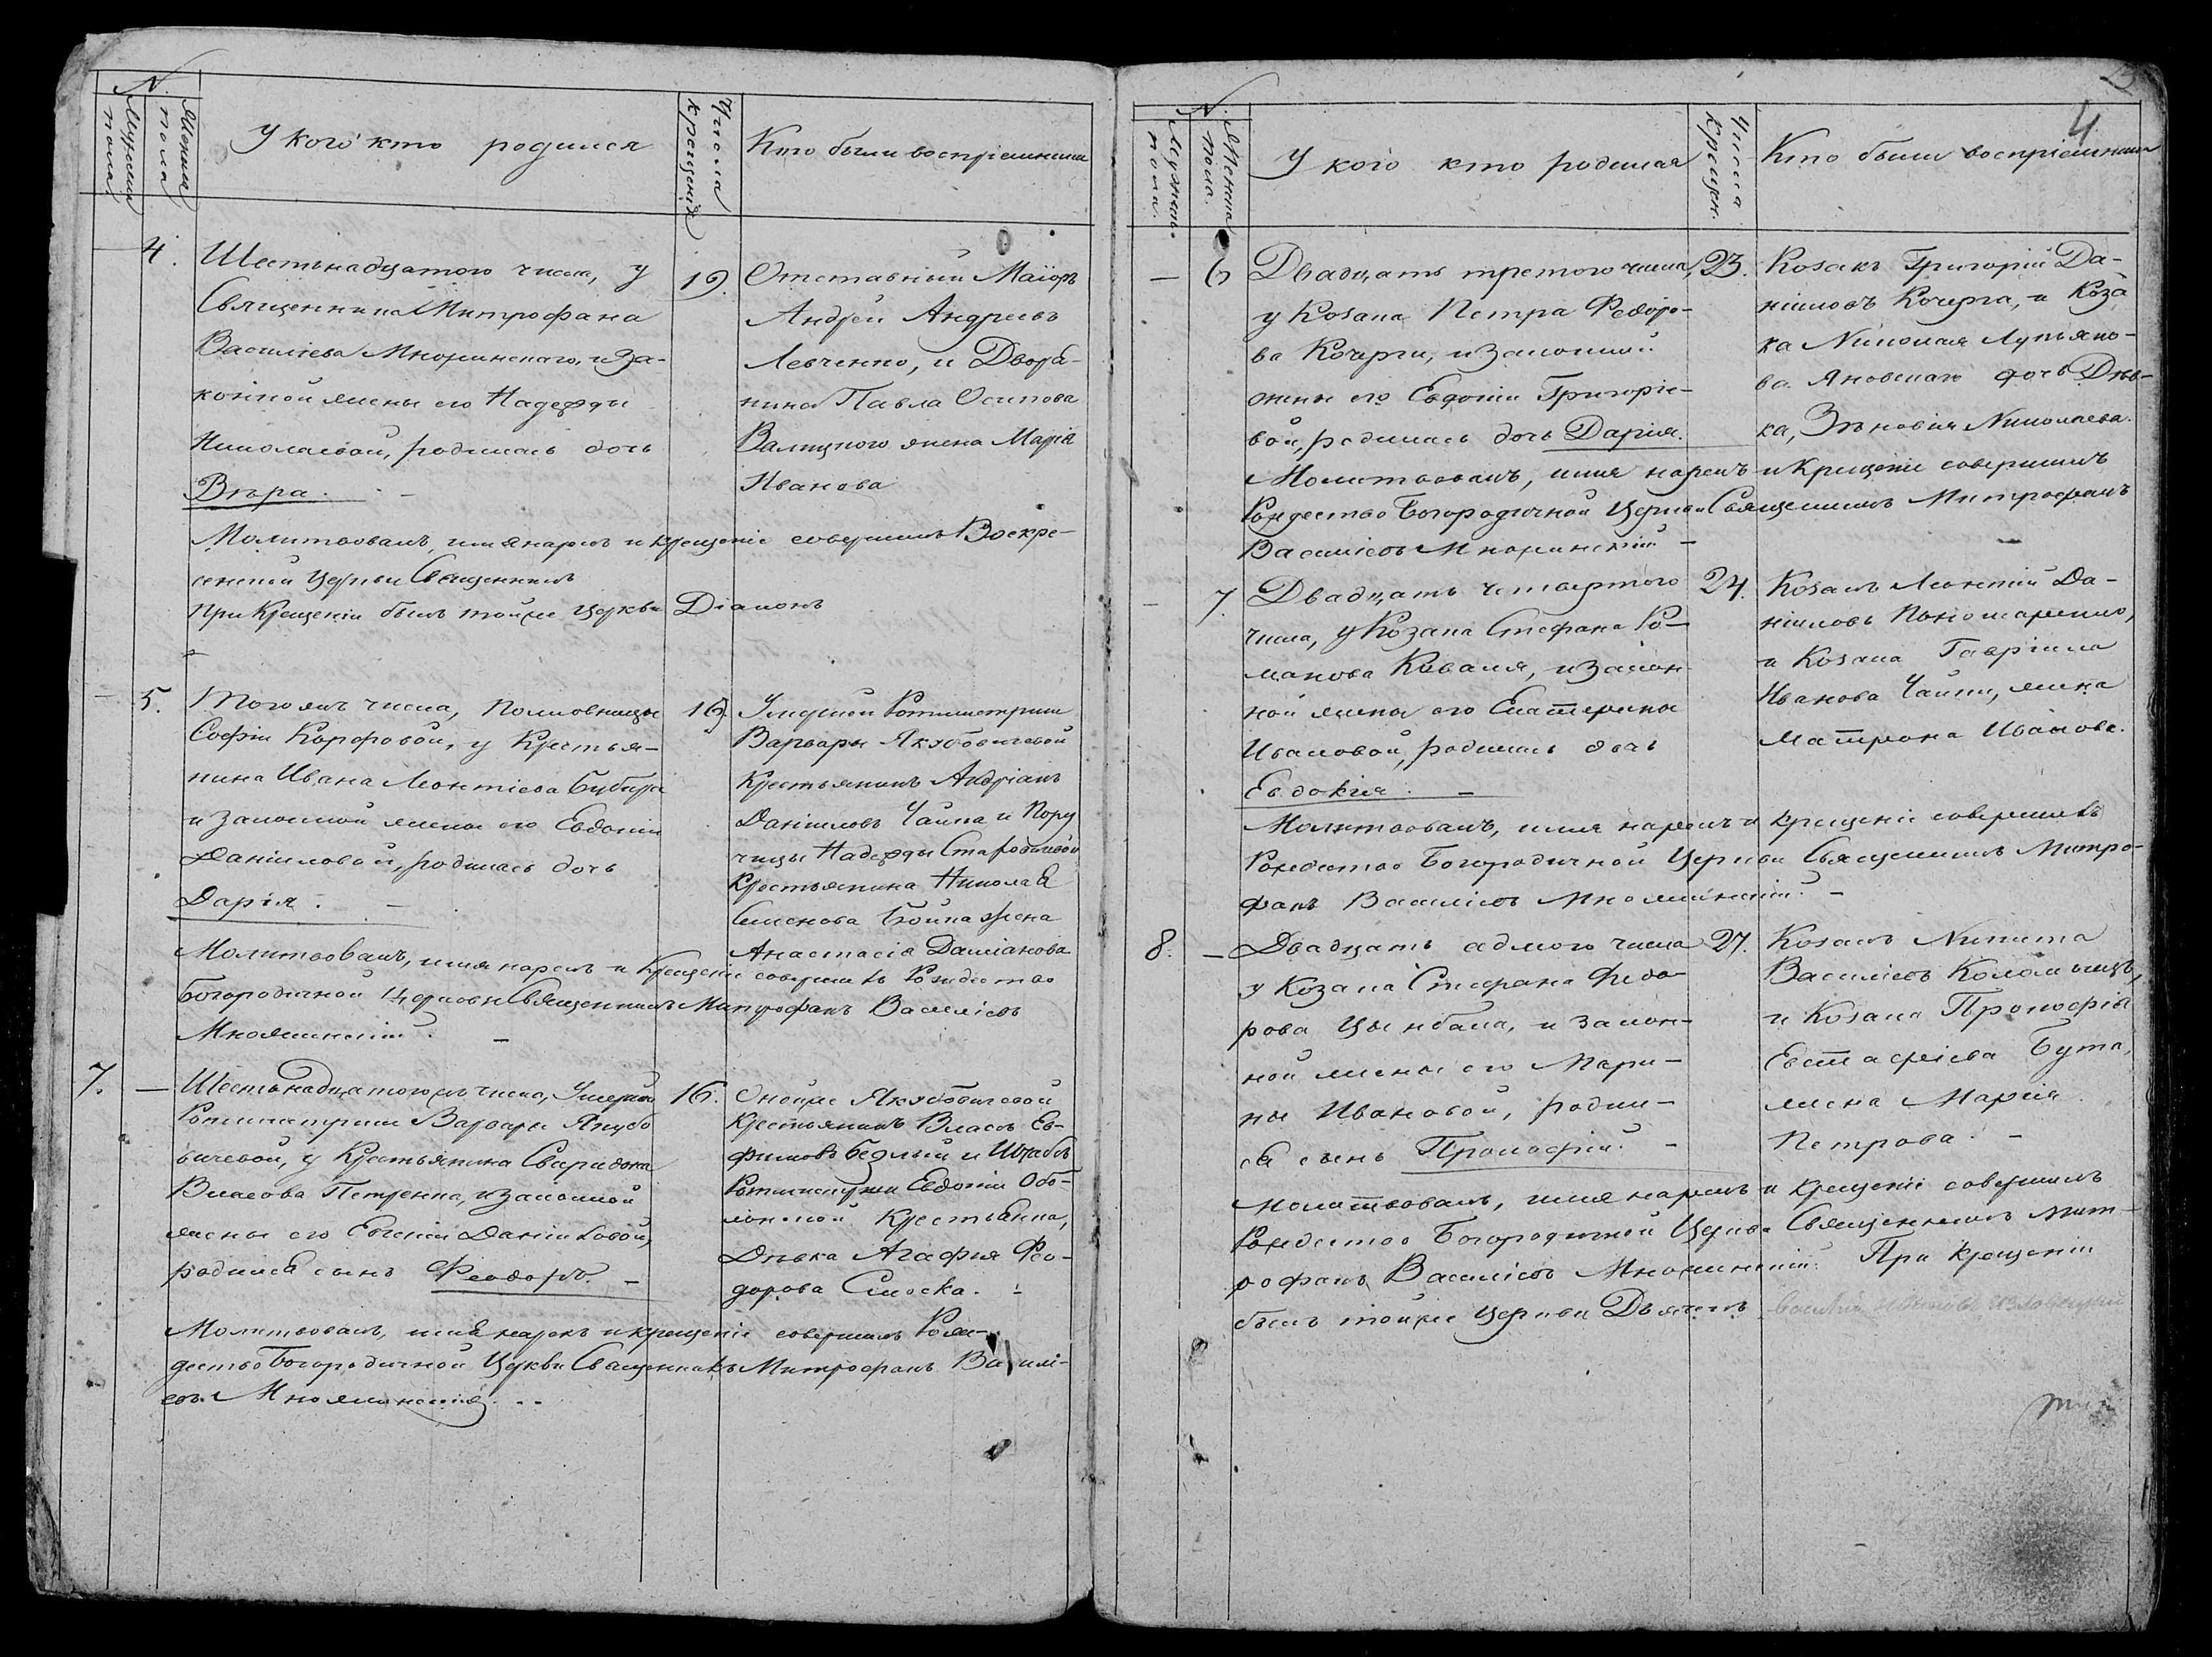 N.
Мужеска пола
Женска пола
У кого кто родился
Числа крещенія
Кто были воспріемники
4.
Шестьнадцатого числа, у
Священника Митрофана
Василіева Множинского, и за-
конной жены его Надежды
Николаевой, родилась дочь
Вѣра.
19.
Отставный Маіоръ
Андрей Андреевъ
Левченко, и Дворя-
нина Павла Осипова
жена Марія
Иванова
Молитвовалъ, имя нарекъ и крещеніе совершилъ Воскре-
сенской Церкви Священникъ
При Крещеніи былъ тойже Церкви Діаконъ
5.
Того жъ числа, Полковницы
Софіи, у Крестья-
нина Ивана Леонтіева
и законной жены его Евдокіи
Даніиловой, родилась дочь
Дарія.
16.
Умершей Ротмистрши
Варвары Якубовичевой
Крестьянинъ Андріанъ
Даніиловъ Чайка и Пору
чицы Надежды
Крестьянина Николая
Семенова Бойка жена
Анастасія Даміанова
Молитвовалъ, имя нарекъ и Крещеніе совершилъ Рождество
Богородичной Церкови Священникъ Митрофанъ Василіевъ
Множинскій.
7.
Шестьнадцатогожъ числа, Умершей
Ротмистрши Варвары Якубо
вичевой, у Крестьянина Свиридона
Власова Петренка, и законной
жены его Евгеніи Даніиловой,
родился сынъ Феодоръ.
16.
Онойже Якубовичевой
Крестьянинъ Власъ Ев-
фимовъ Бедлый и Штабсъ
Ротмистрши Евдокіи Обо-
лонской Крестьянка,
Дѣвка Агафія Фео-
дорова
Молитвовалъ, имя нарекъ и крещеніе совершилъ Рож-
дество Богородичной Церкви Священникъ Митрофанъ Василі-
евъ Множинскій
4
N.
Мужеска пола.
Женска пола.
У кого кто родился
Числа крещен.
Кто были воспріемники
6
Двадцать третого числа,
у Козака Петра Федоро-
ва Кочерги, и законной
жены его Евдокіи Григоріе-
вой, родилась дочь Дарія.
23.
Козакъ Григорій Да-
ніиловъ Кочерга, и Коза
ка Николая Лукьяно-
ва Яновскаго дочь Дѣв-
ка, Зѣновія Николаева.
Молитвовалъ, имя нарекъ и Крещеніе совершилъ
Рождество Богородичной Церкви Священникъ Митрофанъ
Василіевъ Множинскій
7.
Двадцать четвертого
числа, у Козака Стефана Ро-
манова Коваля, и закон
ной жены его Екатерины
Ивановой, родилась дочь
Евдокія.
24.
Козакъ Леонтій Да-
ніиловъ Пономаренко,
и Козака Гавріила
Иванова Чайки, жена
Матрона Иванова.
Молитвовалъ, имя нарекъ и крещеніе совершилъ
Рождество Богородичной Церкви Священникъ Митро-
фанъ Василіевъ Множинскій.
8.
Двадцать седмого числа
у Козака Стефана Федо-
рова Цымбала, и закон-
ной жены его Мари-
ны Ивановой, родил-
ся сынъ Прокофій.
27.
Козакъ Никита
Василіевъ Коломыецъ,
и Козака Прокофія
Евстафіева Бута,
жена Марія
Петрова.
Молитвовалъ, имя нарекъ и крещеніе совершилъ
Рождество Богородичной Церкви Священникъ Мит-
рофанъ Василіевъ Множинскій. При крещеніи
былъ тойже Церкви Дьячекъ